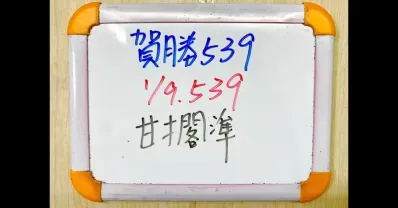 賀勝539
1/9.539
甘扌閣準